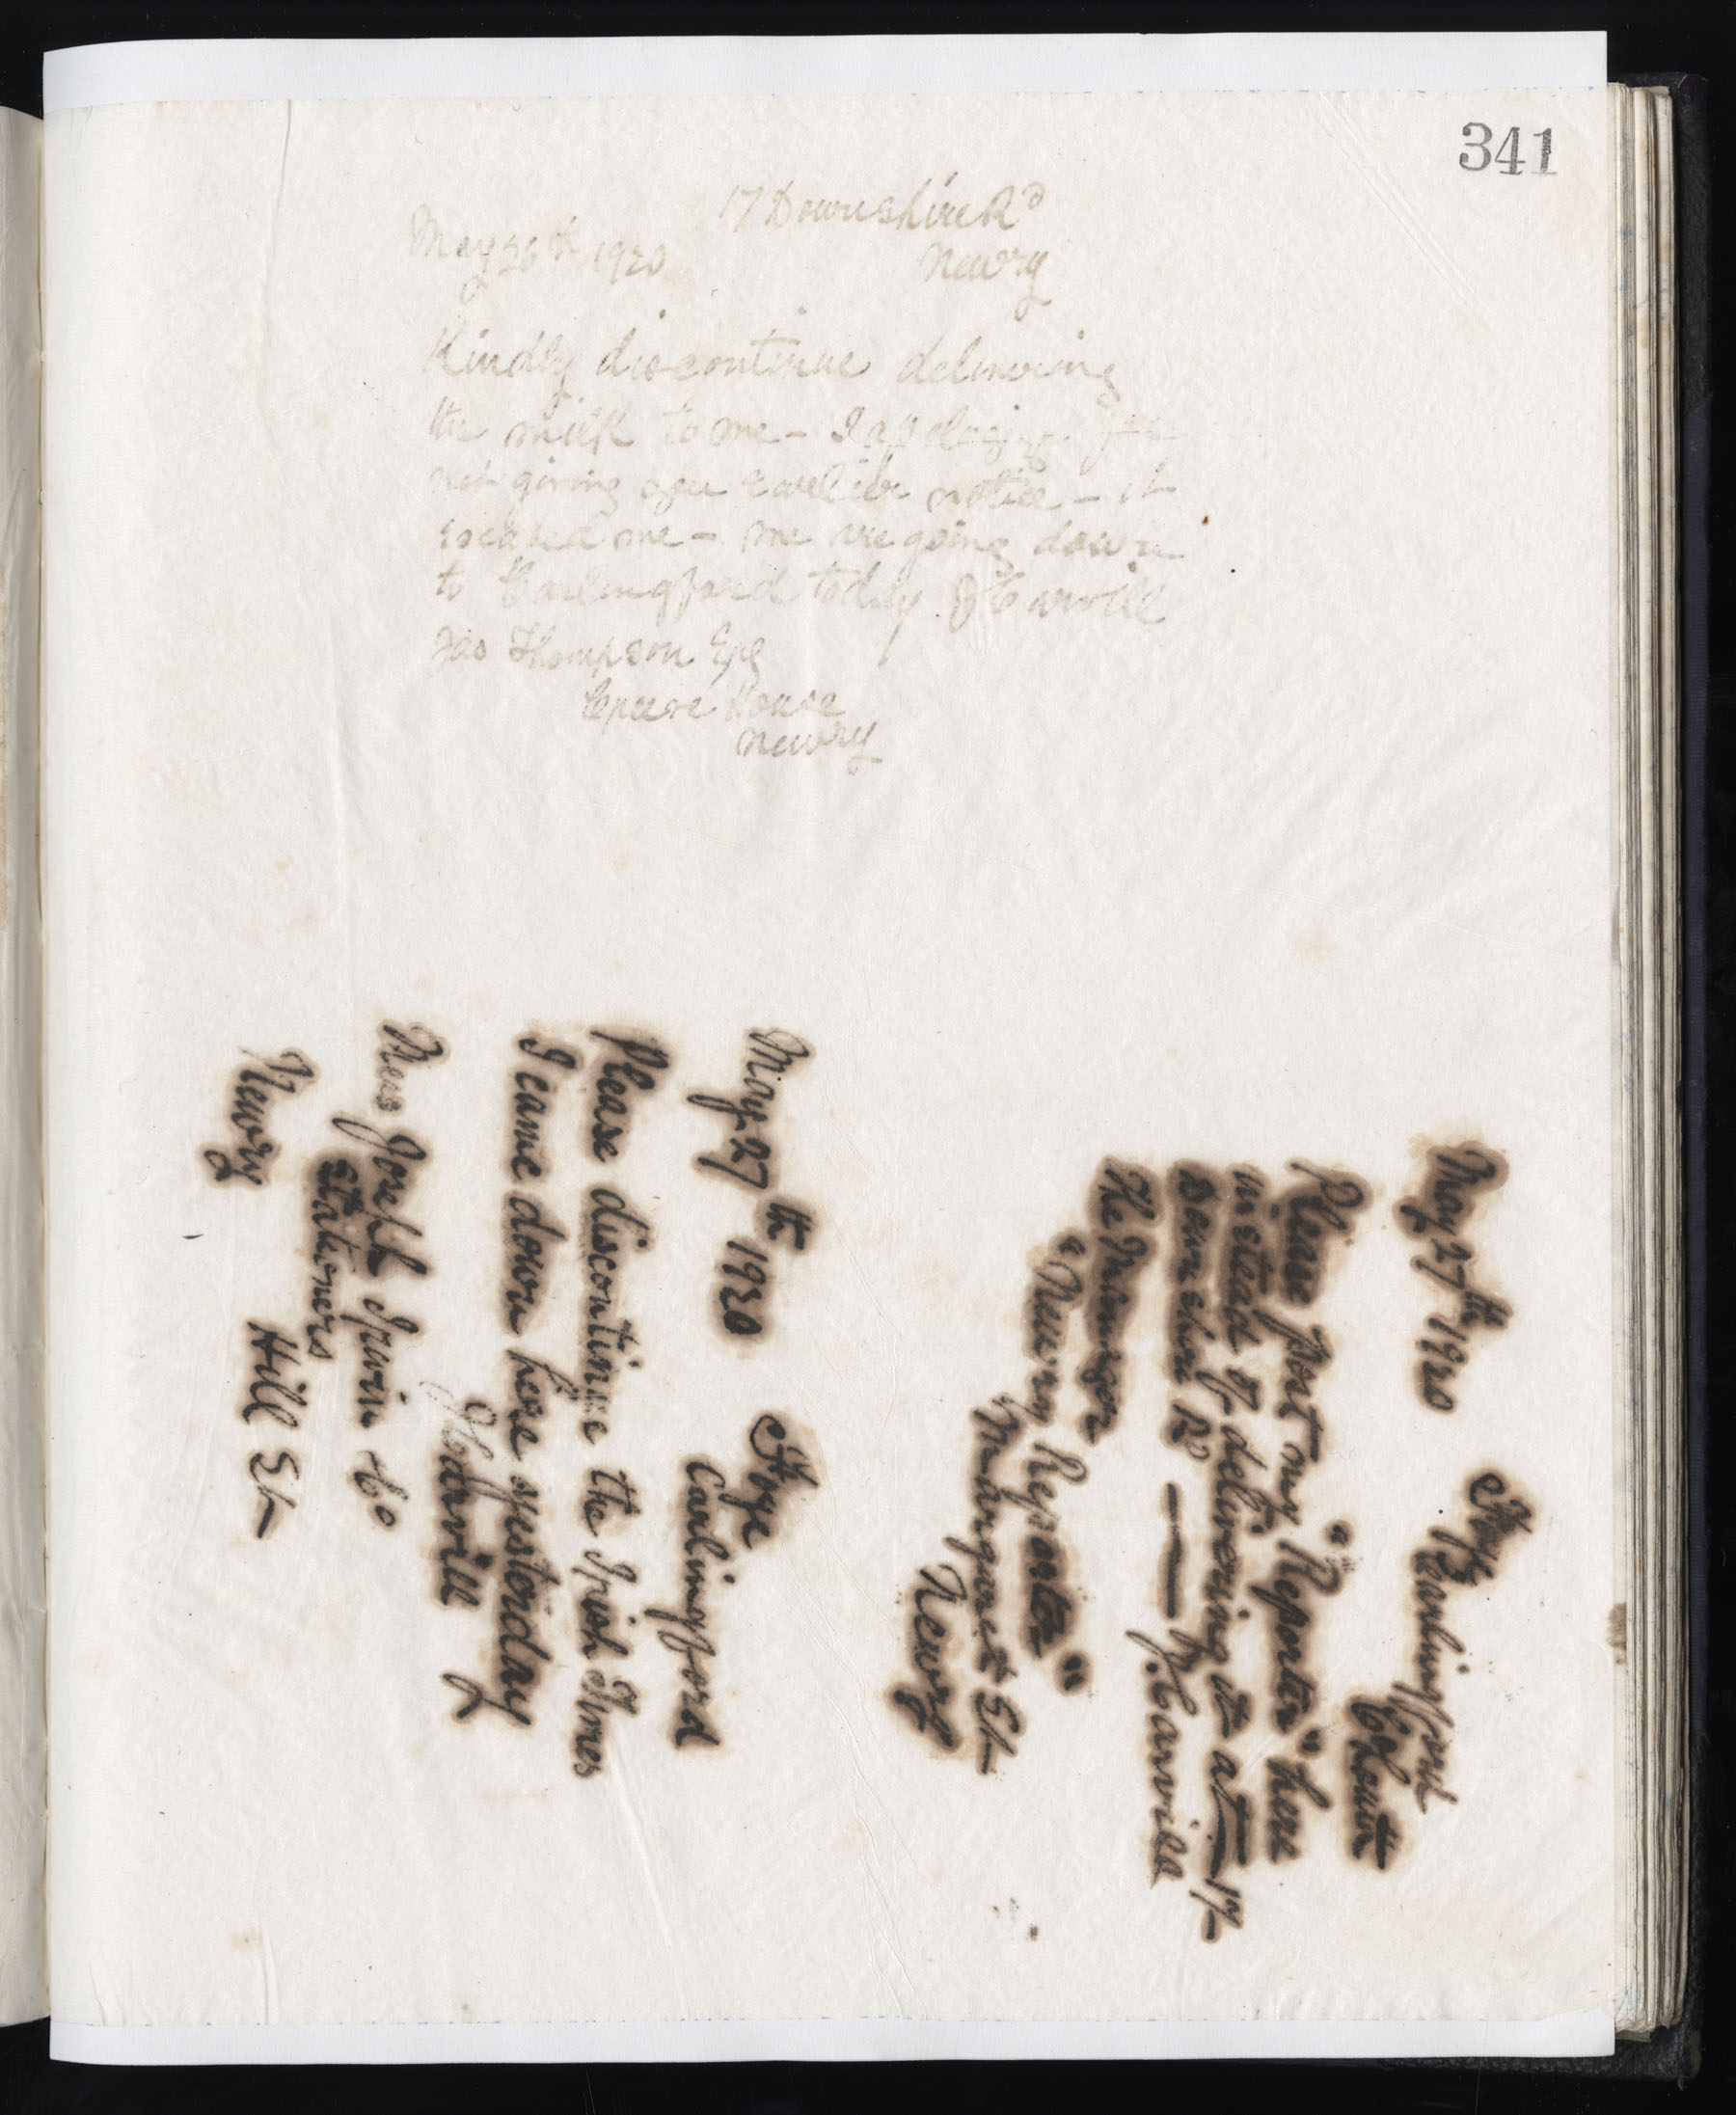 341
17 Downshire Rd
May 26th 1920
Newry
Kindly discontinue delivering
the milk to me - I apologize for
not giving you earlier notice - it
escaped me - we are going down
to Carlingford today J Carvill
Jas Thompson Esq
House
Newry
May 27th 1920
Carlingford
Co Louth
Please post my "Reporter" here
instead of delivering it at 17
Downshire Rd — J. Carvill
The Manager
"Newry Reporter"
Margaret St
Newry
May 27th 1920
Carlingford
Please discontinue the Irish Times
I came down here yesterday
J Carvill
Mess Joseph Irwin & Co
Stationers
Hill St
Newry